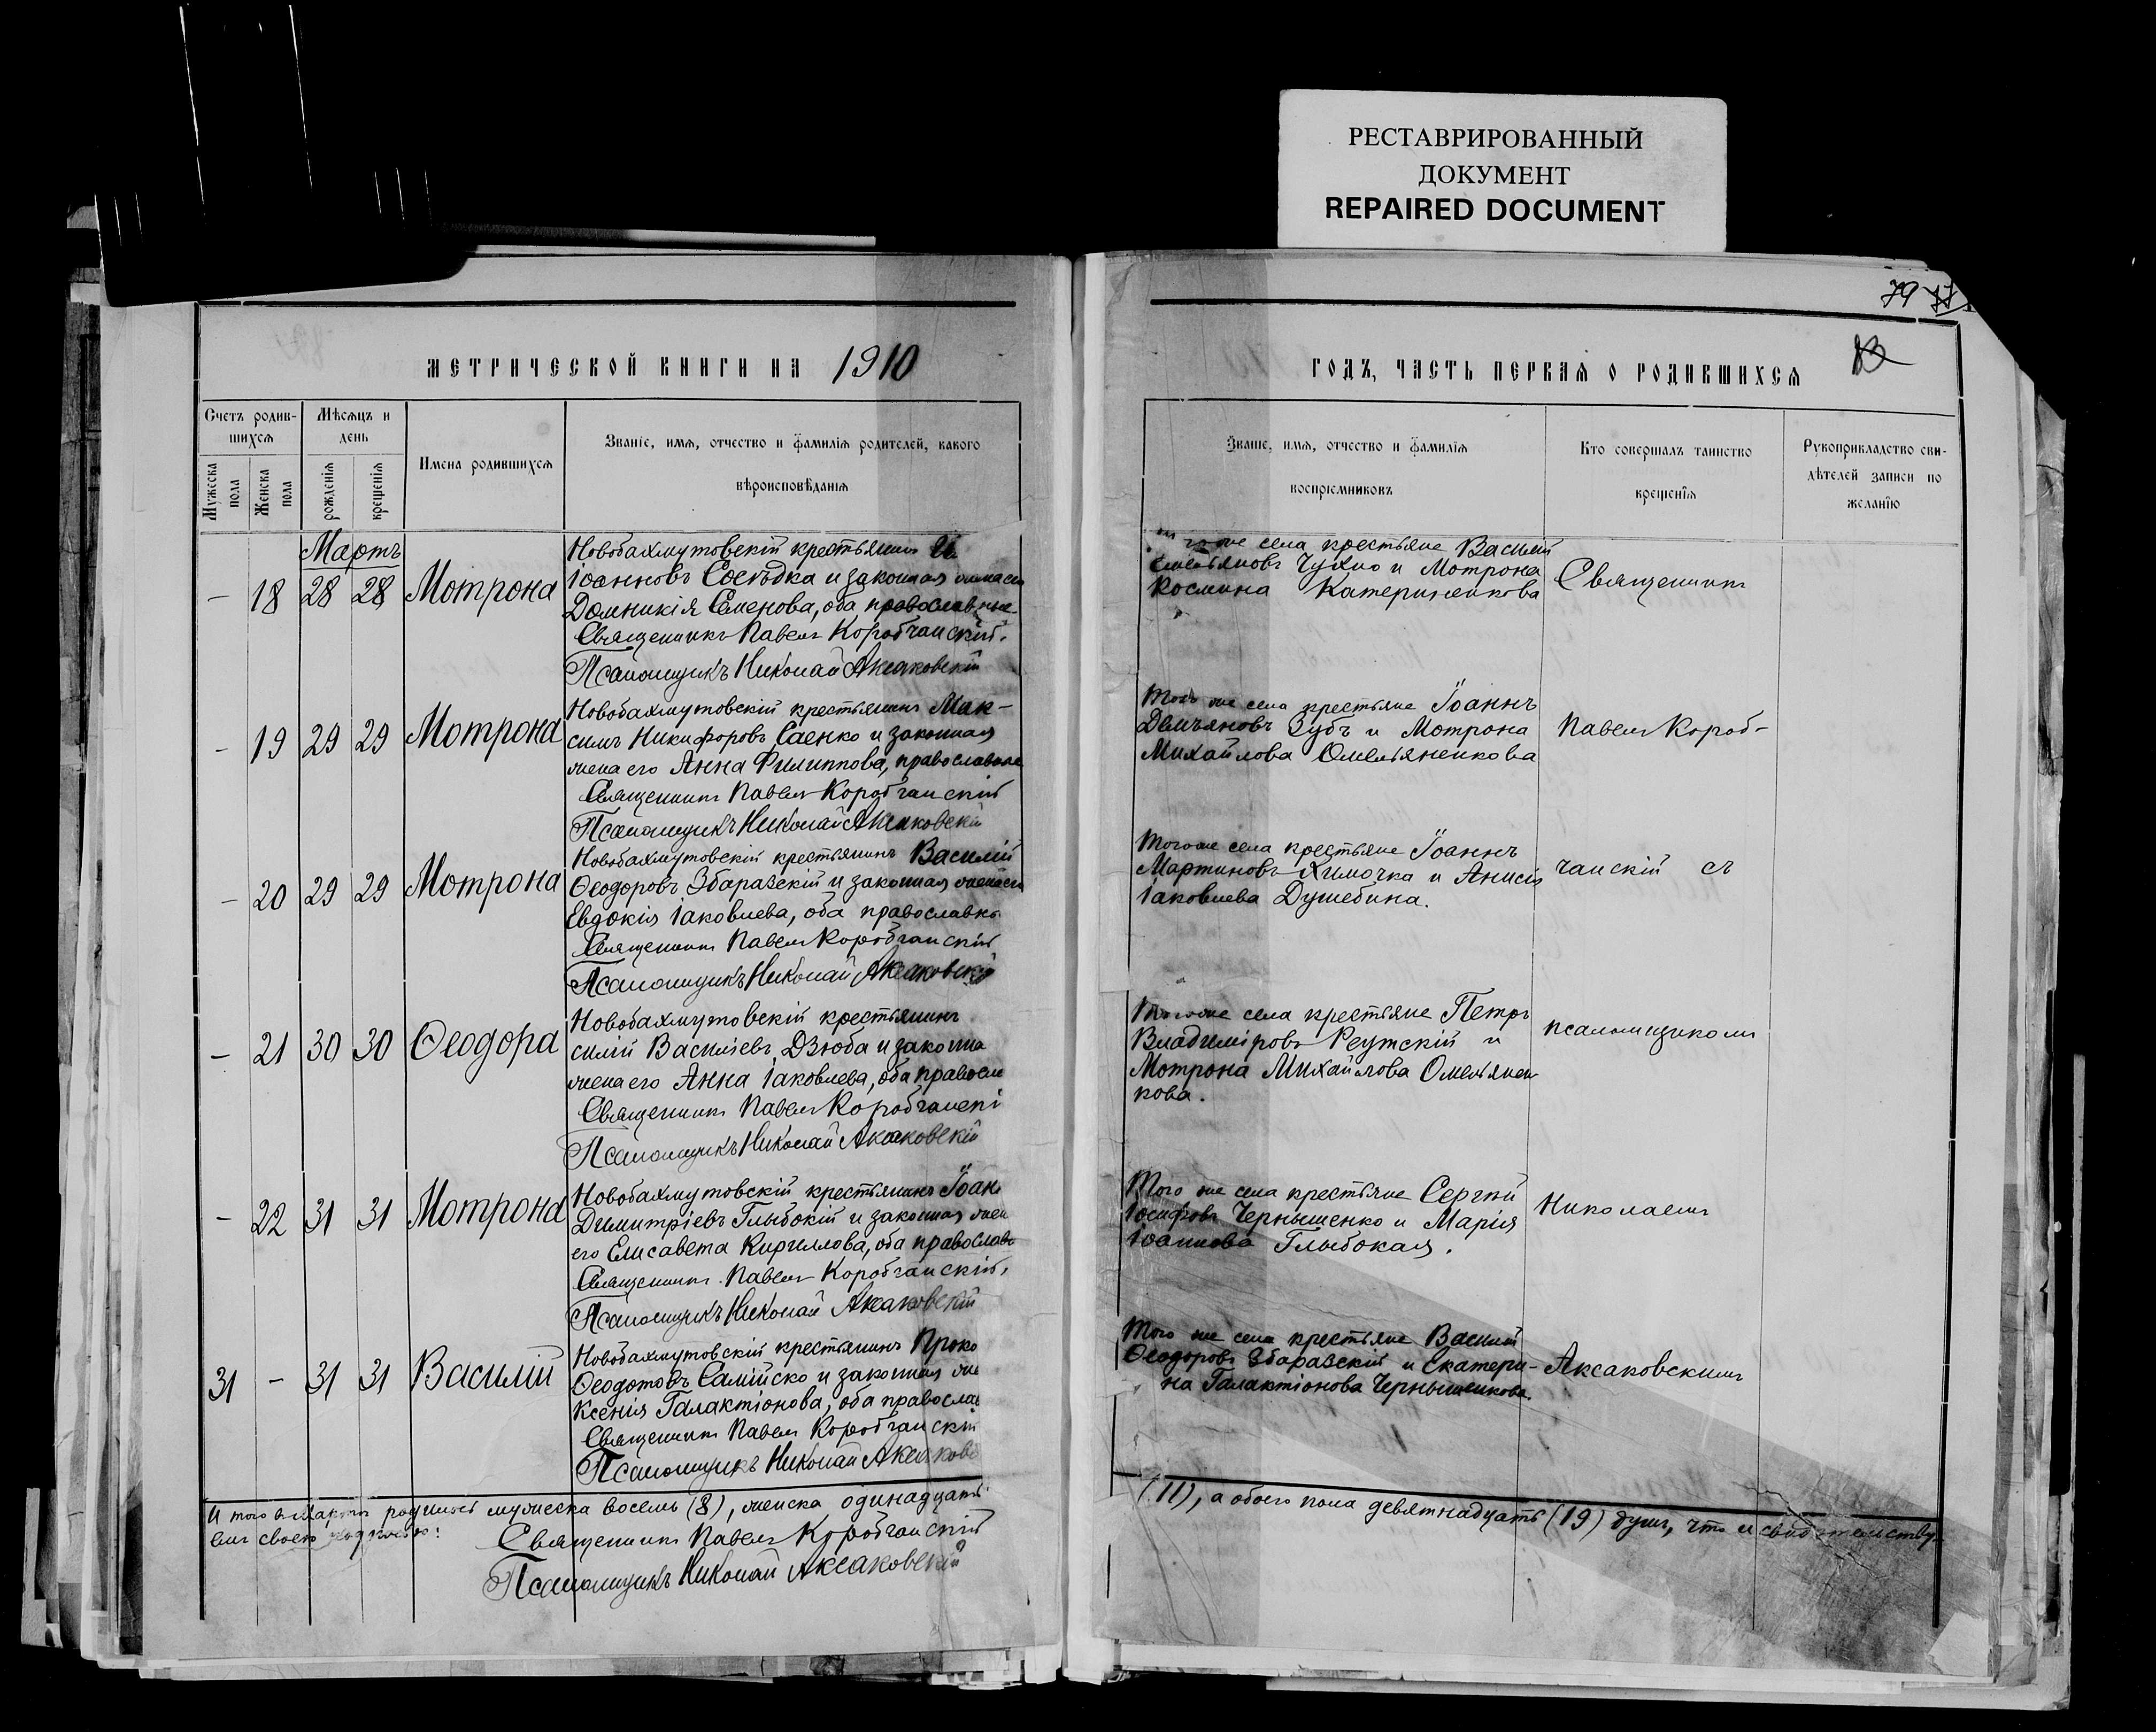 РЕСТАВРИРОВАННЫЙ
ДОКУМЕНТ
REPAIRED DOCUMENT
МЕТРИЧЕСКОЙ КНИГИ НА 1910
Счетъ родив-
шихся
Мѣсяцъ и
день
Имена родившихся
Званіе, имя, отчество и фамилія родителей, какого
вѣроисповѣданія
Мужеска
пола
Женска
пола
рожденія
крещенія
Мартъ
- 18 28 28 Мотрона
Новобахмутовскій крестьянинъ
Іоанновъ Сосѣдка и законная жена его
Домникія Семенова, оба православные
Священникъ Павелъ Коробчанскій.
Псаломщикъ Николай Аксаковскій
- 19 29 29 Мотрона
Новобахмутовскій крестьянинъ Мак-
симъ Никифоровъ Саенко и законная
жена его Анна Филиппова, православные
Священникъ Павелъ Коробчанскій
Псаломщикъ Николай Аксаковскій
- 20 29 29 Мотрона
Новобахмутовскій крестьянинъ Василій
Ѳеодоровъ Збаразскій и законная жена его
Евдокія Іаковлева, оба православны
Священникъ Павелъ Коробчанскій
Псаломщикъ Николай Аксаковскій
- 21 30 30 Ѳеодора
Новобахмутовскій крестьянинъ
силій Василіевъ Дзюба и законна
жена его Анна Іаковлева, оба правосл
Священникъ Павелъ Коробчанскі
Псаломщикъ Николай Аксаковскій
- 22 31 31 Мотрона
Новобахмутовскій крестьянинъ Іоан
Димитріевъ Глыбокій и законная жен
его Елисавета Кириллова, оба православ
Священникъ Павелъ Коробчанскій,
Псаломщикъ Николай Аксаковскій
31 - 31 31 Василій
Новобахмутовскій крестьянинъ Проко
Ѳеодотовъ Самійско и законная же
Ксенія Галактіонова, оба правосла
Священникъ Павелъ Коробчанскій
Псаломщикъ Николай Аксаковс
И того въ Мартѣ родилось мужеска восемь (8), женска одинадцать
емъ своею подписью:
Священникъ Павелъ Коробчанскій
Псаломщикъ Николай Аксаковскій
79
13
ГОДЪ, ЧАСТЬ ПЕРВАЯ О РОДИВШИХСЯ
Званіе, имя, отчество и фамилія
воспріемниковъ
Кто совершалъ таинство
крещенія
Рукоприкладство сви-
дѣтелей записи по
желанію
того же села крестьяне Василій
Емельяновъ Чухно и Мотрона
Космина Катериненкова
Священникъ
Того же села крестьяне Іоаннъ
Демъяновъ Зубъ и Мотрона
Михайлова Омельяненкова
Павелъ Короб-
Того же села крестьяне Іоаннъ
Мартиновъ Химочка и Анисія
Іаковлева Душебина.
чанскій съ
Того же села крестьяне Петръ
Владиміровъ Реутскій и
Мотрона Михайлова Омельянен
кова.
псаломщикомъ
Того же села крестьяне Сергій
Іосифовъ Чернышенко и Марія
Іоаннова Глыбокая.
Николаемъ
Того же села крестьяне Василій
Ѳеодоровъ Збаразскій и Екатери-
на Галактіонова Чернышенкова.
Аксаковскимъ
(11), а обоего пола девятнадцать (19) душъ, что и свидѣтельству-